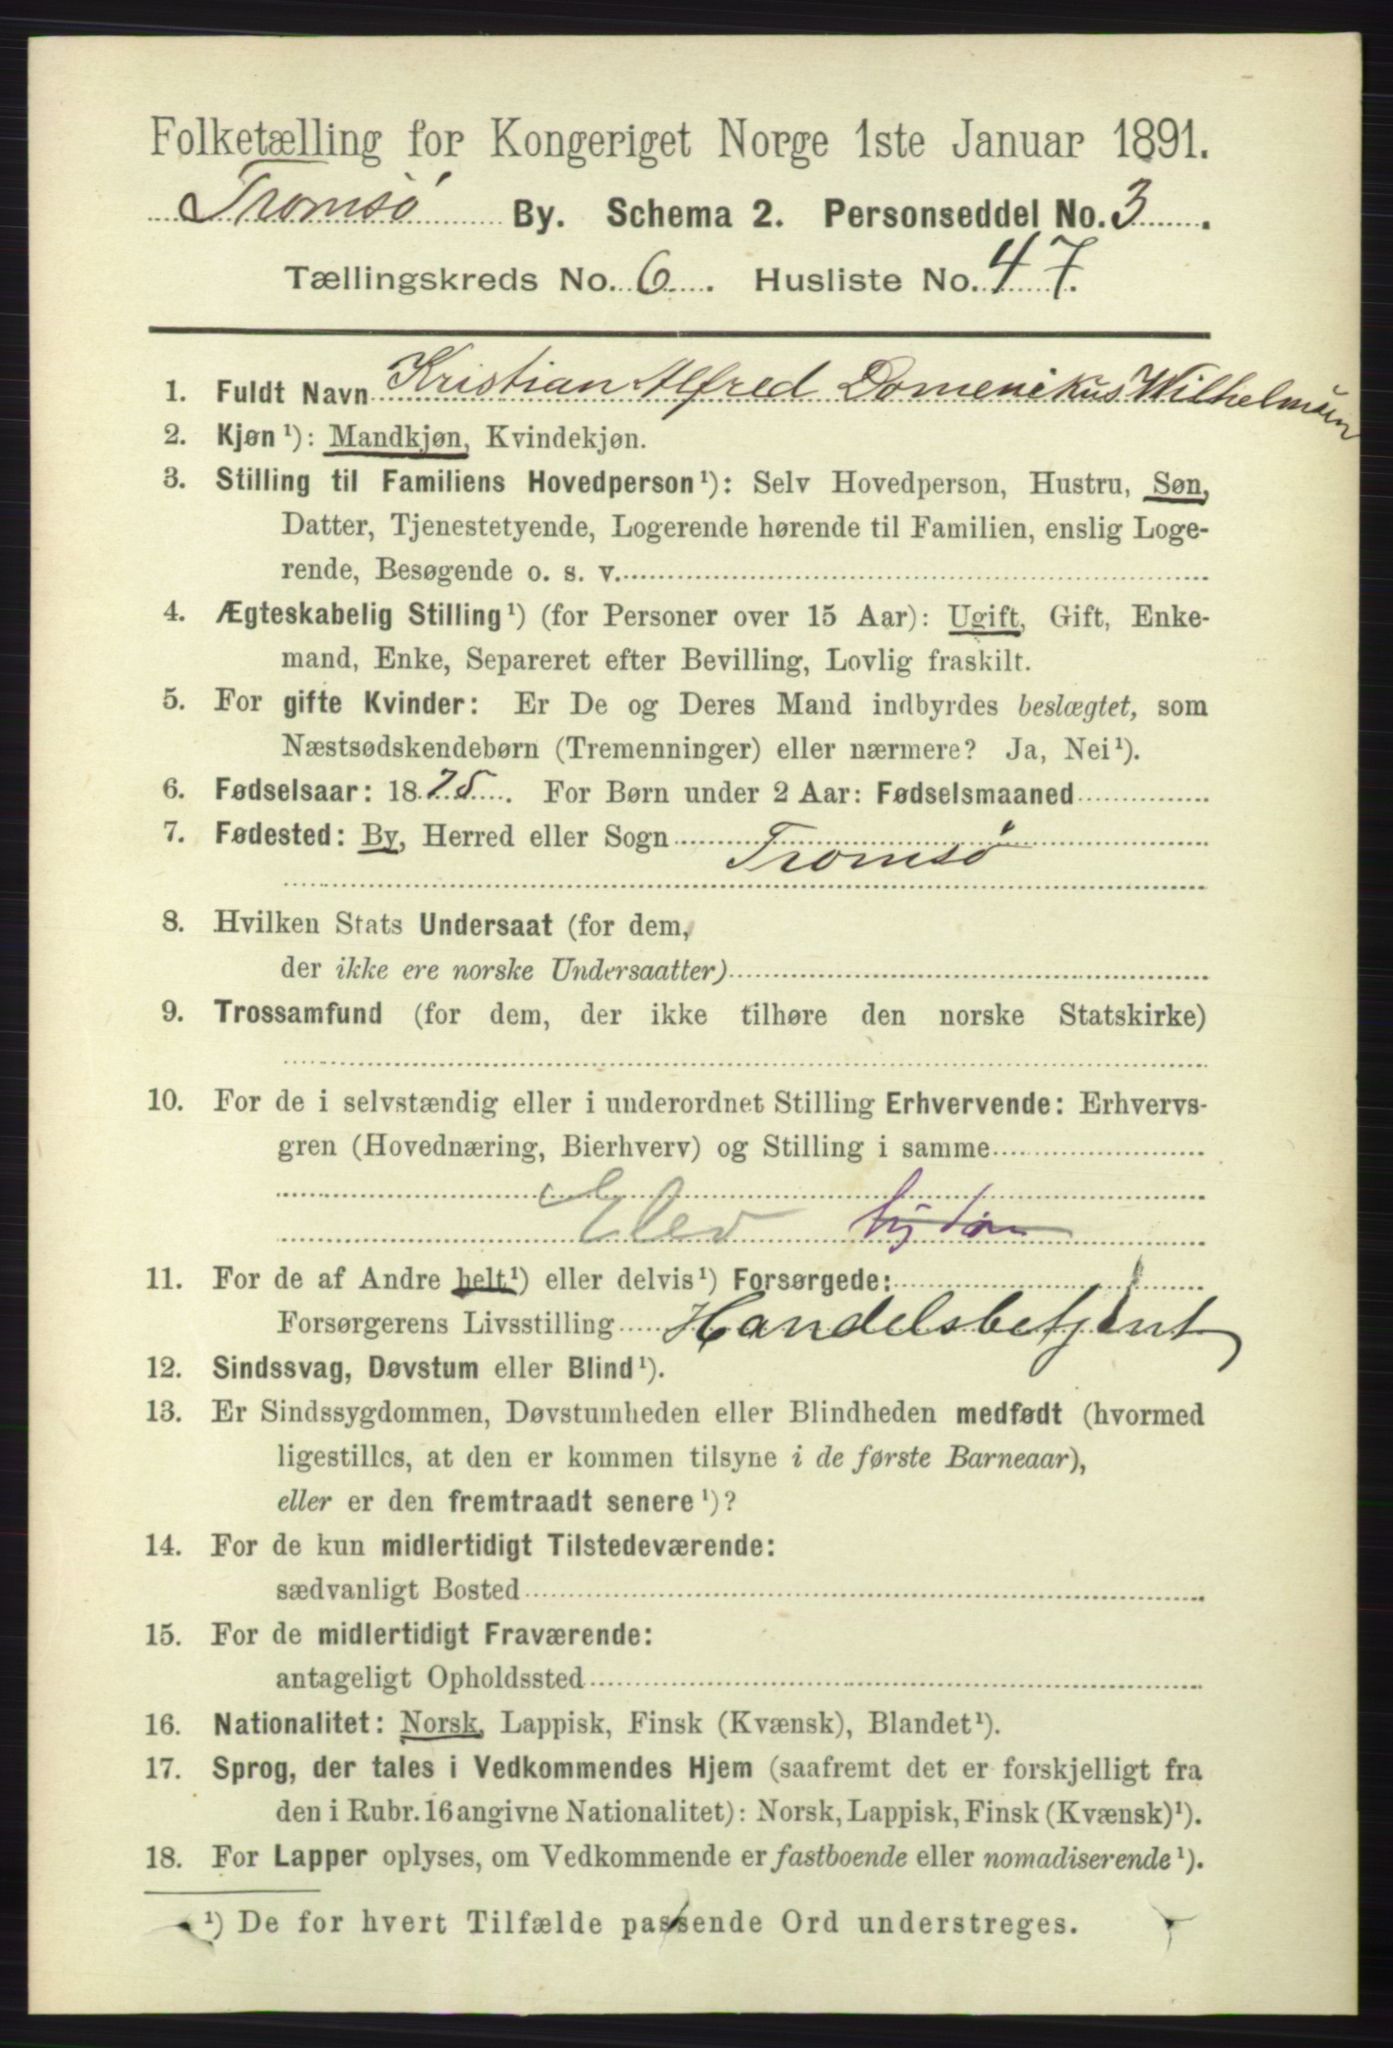 Folketælling for Kongeriget Norge 1ste Januar 1891.
Tromsø By. Schema 2. Personseddel No. 3.
Tællingskreds No. 6. Husliste No. 47.
1. Fuldt Navn Kristian Alfred Domenikus Wilhelmsen
2. Kjøn¹): Mandkjøn, Kvindekjøn.
3. Stilling til Familiens Hovedperson¹): Selv Hovedperson, Hustru, Søn,
Datter, Tjenestetyende, Logerende hørende til Familien, enslig Loge-
rende, Besøgende o. s. v.
4. Ægteskabelig Stilling¹) (for Personer over 15 Aar): Ugift, Gift, Enke-
mand, Enke, Separeret efter Bevilling, Lovlig fraskilt.
5. For gifte Kvinder: Er De og Deres Mand indbyrdes beslægtet, som
Næstsødskendebørn (Tremenninger) eller nærmere? Ja, Nei¹).
6. Fødselsaar: 1875. For Børn under 2 Aar: Fødselsmaaned
7. Fødested: By, Herred eller Sogn
Tromsø
8. Hvilken Stats Undersaat (for dem,
der ikke ere norske Undersaatter)
9. Trossamfund (for dem, der ikke tilhøre den norske Statskirke)
10. For de i selvstændig eller i underordnet Stilling Erhvervende: Erhvervs-
gren (Hovednæring, Bierhverv) og Stilling i samme
Elev
11. For de af Andre helt¹) eller delvis¹) Forsørgede:
Forsørgerens Livsstilling Handelsbetjent
12. Sindssvag, Døvstum eller Blind¹).
13. Er Sindssygdommen, Døvstumheden eller Blindheden medfødt (hvormed
ligestilles, at den er kommen tilsyne i de første Barneaar),
eller er den fremtraadt senere¹)?
14. For de kun midlertidigt Tilstedeværende:
sædvanligt Bosted
15. For de midlertidigt Fraværende:
antageligt Opholdssted
16. Nationalitet: Norsk, Lappisk, Finsk (Kvænsk), Blandet¹).
17. Sprog, der tales i Vedkommendes Hjem (saafremt det er forskjelligt fra
den i Rubr. 16 angivne Nationalitet): Norsk, Lappisk, Finsk (Kvænsk)¹).
18. For Lapper oplyses, om Vedkommende er fastboende eller nomadiserende¹).
¹) De for hvert Tilfælde passende Ord understreges.